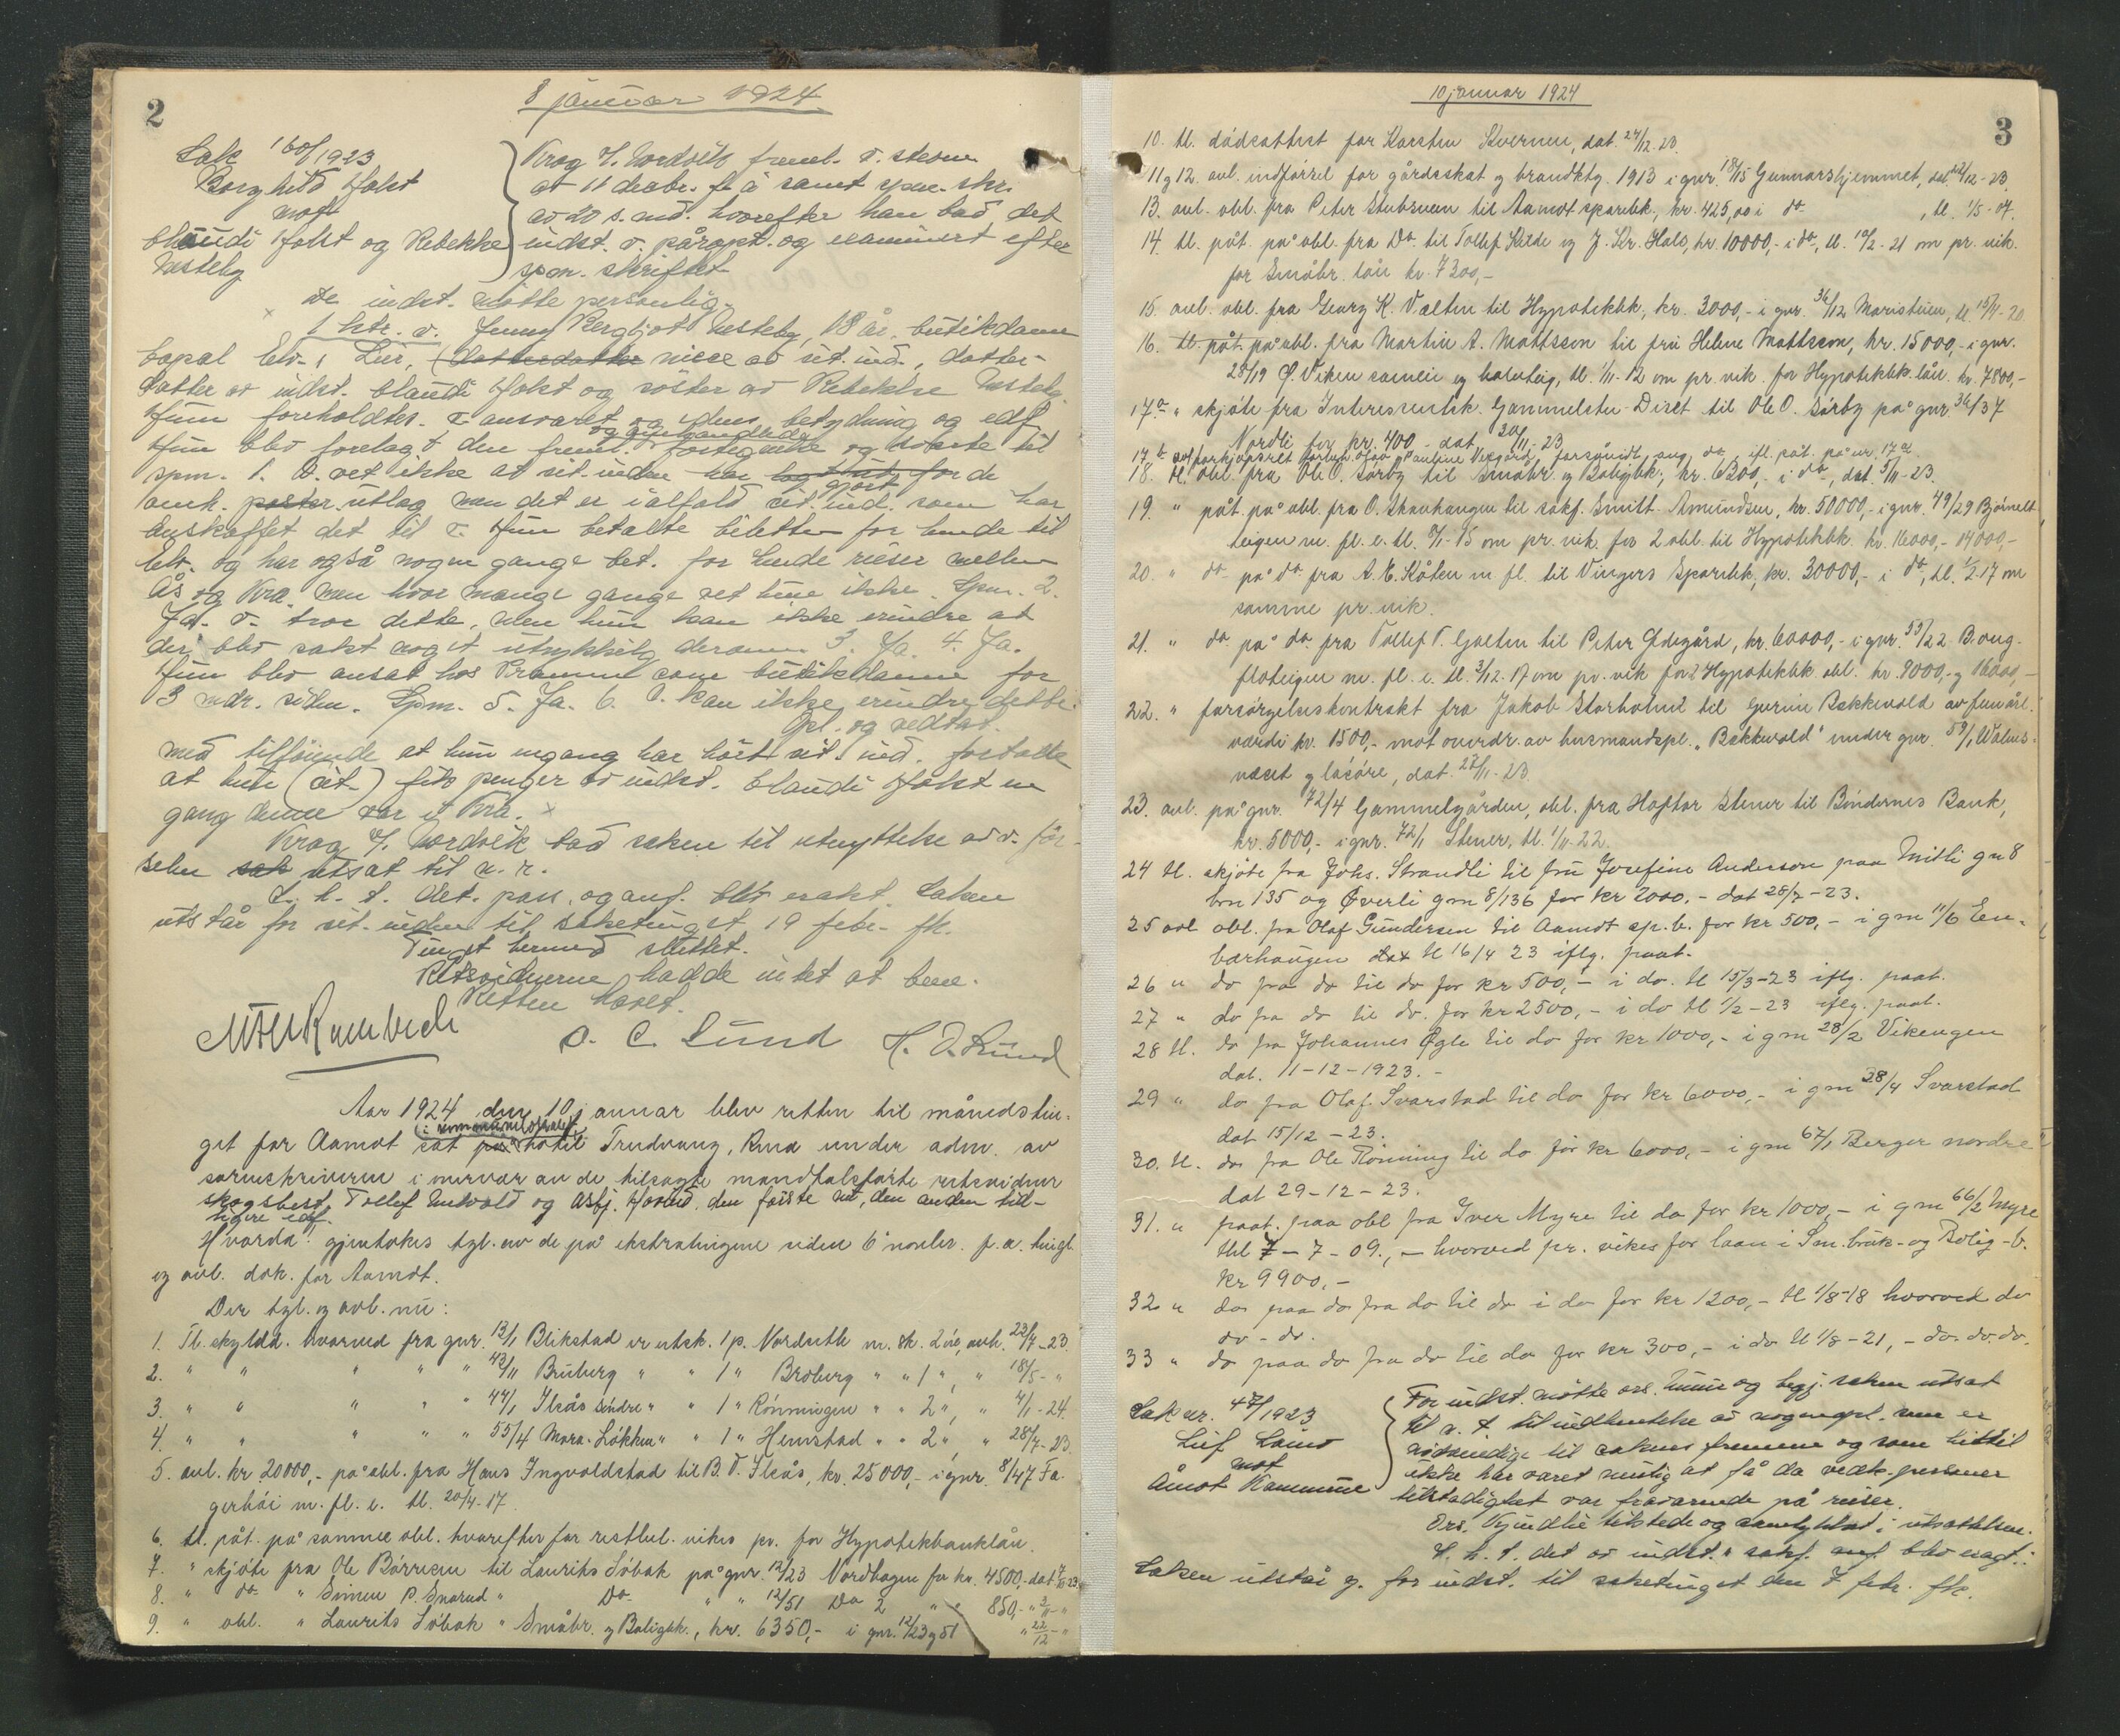 2
8 januar 1924
Sak 160/1923
Borghild Holst
mot
Claudi Holst og Rebekka
Nesteby
Krog v/ Nordvik freml. v. stevn.
at 11 decbr. f. å samt spm. skr.
av 20 s. md. hvorefter han bad det
indst. v. påropt og examinert efter
spm. skriftet
De indst. møtte personlig.
1 htr. v. Jenny Bergljot Nesteby, 18 år, butikdame
bopæl Elv., Lier, datterdatter niece av sit. ind., datter-
datter av indst. Claudi Holst og søster av Rebekke Nesteby
Hun foreholdtes v. ansvaret og edens betydning og edf.
Hun blev forelagt den freml. fortegnelse og svarte til
og gjenhandlede
spm. 1. V. vet ikke at sit. inden har for de
gjort
anh. poster utlæg men det er ialfald sit. ind. som har
anskaffet det til v. Hun betalte billetten for hende til
Elv. og har også nogen gange bet. for hende reiser mellem
Ås og Kra. men hvor mange gange vet hun ikke. Spm. 2.
Ja. v. tror dette, men hun kan ikke erindre at
der blev sakt noget uttrykkelig derom. 3. Ja. 4. Ja.
Hun blev ansat hos Pramm som butikdame for
3 mdr. siden. Spm. 5. Ja. 6. V. kan ikke erindre dette.
Opl. og vedtat.
med tilføiende at hun engang har hørt sit. ind. fortalte
at hun (sit.) fik penger av indst. Claudi Holst en
gang denne var i Kra.
Krog v/ Nordvik bad saken til utnyttelse av v. før-
selen sak utsat til u. r.
S. h. t. det. pass. og anf. blev esakt. Saken
utstår for sit. inden til saketinget 19 febr. fk.
Tinget hermed sluttet.
Retsvidnerne hadde intet at bem.
Retten hævet.
O. C. Lund H. O. Lund
Aar 1924 den 10 januar blev retten til månedstin-
get for Aamot sat på hotel Trudvang, Rena under adm. av
i kommunelokalet
sorenskriveren i nærvær av de tilsagte mandtalsførte retsvidner
skogsbest. Tollef Netvold og Asbj. Hovind, den første ne, den anden tid-
ligere edf.
Hvorda: gjentokes tgl. av de på ekstratingene siden 6 novbr. f. a. tingl.
og avl. dok. for Aamot.
Der tgl. og avl. nu:
1. Tl. skyldd. hvorved fra gnr. 13/1 Blikstad er utsk. 1 p. Nordseth m. sk. 2 øre, avh. 23/7-23.
2. " " " " " 43/11 Bruberg " " 1 " Broberg " " 1 ", " 18/5- "
3. " " " " " 44/1 Ilsås søndre " " 1 " Rønningen " " 2 ", " 4/1-24.
4. " " " " " 55/4 Mora-Løkken " " 1 " Hemstad " " 2 ", " 28/7-23.
5. avl. kr. 20000,- på obl. fra Hans Ingvoldstad til B. O. Ilsås, kr. 25000,- i gnr. 8/47 Fa-
gerhøi m. fl. e. tl. 20/4-17.
6. tl. påt. på samme obl. hvorefter for restbel. vikes pr. for Hypotekbanklån.
7. " skjøte fra Ole Børresen til Laurits Søbak på gnr. 12/23 Nordhagen for kr. 4500,- dat.
8. " do " Simen P. Snarud " Do " " 12/51 Do 2 " " 850,- "
9. " obl. " Laurits Søbak " Småbr. og Boligbk., kr. 6350,- i gnr. 12/23 og 51 " 22/12- "
3
10 januar 1924
10. tl. dødsattest for Karsten Kvernen, dat. 24/12-23.
11 og 12. avl. indførsel for gårdsskat og brandktg. 1913 i gnr. 18/15 Gunnarshjemmet,
13. avl. obl. fra Peter Stubrveen til Aamot sparebk., kr. 425,00 i do , tl. 1/5-07.
14. tl. påt. på obl. fra Do til Tollef Kilde og J. Kr. Hals, kr. 10000,- i do, tl. 10/2-21 om pr. vik.
for Småbr. lån kr. 7300,-
15. avl. obl. fra Georg K. Valten til Hypotekbk., kr. 3000,- i gnr. 36/12 Maristuen, tl. 15/4-20
16. tl. påt. på obl. fra Martin A. Mattsson til fru Helene Mattsson, kr. 15000,- i gnr.
28/19 Ø. Viken sameie og halvteig, tl. 1/11-12 om pr. vik. for Hypotekbk. lån kr. 7800,-
17.a " skjøte fra Interessentsk. Gammelsten-Diset til Ole O. Sørby på gnr. 36/37
Nordli for kr. 400 - dat. 20/11-23.
17 b avl. forkjøpsret forbeh. Olav og Pauline Vesgård, forsåvidt ang. do, ifl. påt. på nr. 17 a.
18. tl. obl. fra Ole O. Sørby til Småbr. og Boligbk., kr. 6300,- i do, dat. 5/11-23.
19. " påt. på obl. fra O. Skauhaugen til sakf. Smitt-Amundsen, kr. 50000,- i gnr. 49/29 Bjørnelt-
teigen m. fl. e. tl. 7/1-15 om pr. vik. for 2 obl. til Hypotekbk. kr. 16000,- 14000,-
20. " do på do fra A. E. Kålen m fl. til Vingers Sparebk, kr. 30000,- i do, tl. 1/2-17 om
samme pr. vik.
21. " do på do fra Tollef T. Galten til Peter Ødegård, kr. 60000,- i gnr. 53/22 Boug-
floteigen m. fl. e. tl. 3/12-17 om pr. vik. for 2 Hypotekbk. obl. kr. 8000,- og 16000,-
22. " forsørgelseskontrakt fra Jakob Storholmt til Gurine Bekkevold av femårl.
værdi kr. 1500,- mot overdr. av husmandspl. "Bekkevold" under gnr. 59/1 Walnes-
næset og løsøre, dat. 27/11-23.
23. avl. på gnr. 72/4 Gammelgården, obl. fra Haftor Stener til Bøndernes Bank,
kr. 5000,- i gnr. 72/1 Stener, tl. 1/11-22.
24 tl. skjøte fra Johs. Strandli til fru Josefine Anderson paa Mitli gn 8
brn 135 og Øverli gnr 8/136 for kr 2000.- dat 28/7-23.
25 avl obl. fra Olaf Gundersen til Aamot sp. b. for kr 500,- i gnr 11/6 Een-
bærhaugen dat tl 16/4 23 iflg. paat.
26 " do fra do til do for kr 500,- i do. tl 15/3-23 iflg. paat.
27 " do fra do til do. for kr 2500,- i do tl 1/2-23 iflg. paat.
28 tl. do fra Johannes Øgle til do for kr 1000,- i gnr 28/2 Vikengen
dat. 11-12-1923.-
29 " do fra Olaf Svarstad til do for kr 6000,- i gnr 28/4 Svarstad
dat 15/12-23.
30. tl. do fra Ole Rønning til do for kr 6000,- i gnr 67/1 Berger nordre
dat 29-12-23.
31. " paat. paa obl fra Iver Myre til do for kr 1000,- i gnr 66/2 Myre
tbl 7-7-09.,- hvorved pr. vikes for laan i Sm. bruk- og Bolig-b.
kr 9900,-
32 " do paa do fra do til do i do for kr 1200,- tl 1/8-18 hvorved do
do - do.
33 " do paa do fra do til do for kr 300,- i do tl 1/8-21,- do. do do.
Sak nr. 47/1923
Leif Laino
mot
Åmot Kommune
For indst. møtte ors. Lunn og begj. saken utsat
til n. t. til indhentelse av nogen opl. som er
nødvendige til sakens fremme og som hittil
ikke har været mulig at få da vedk. personer
stadighet var fraværende på reiser.
Ors. Kjundlie tilstede og samtykket i utsættelsen.
S. h. t. det av indst.s sakf. anf. blev esagt:
Saken utstår g. for indst. til saketinget den 7 febr. fk.